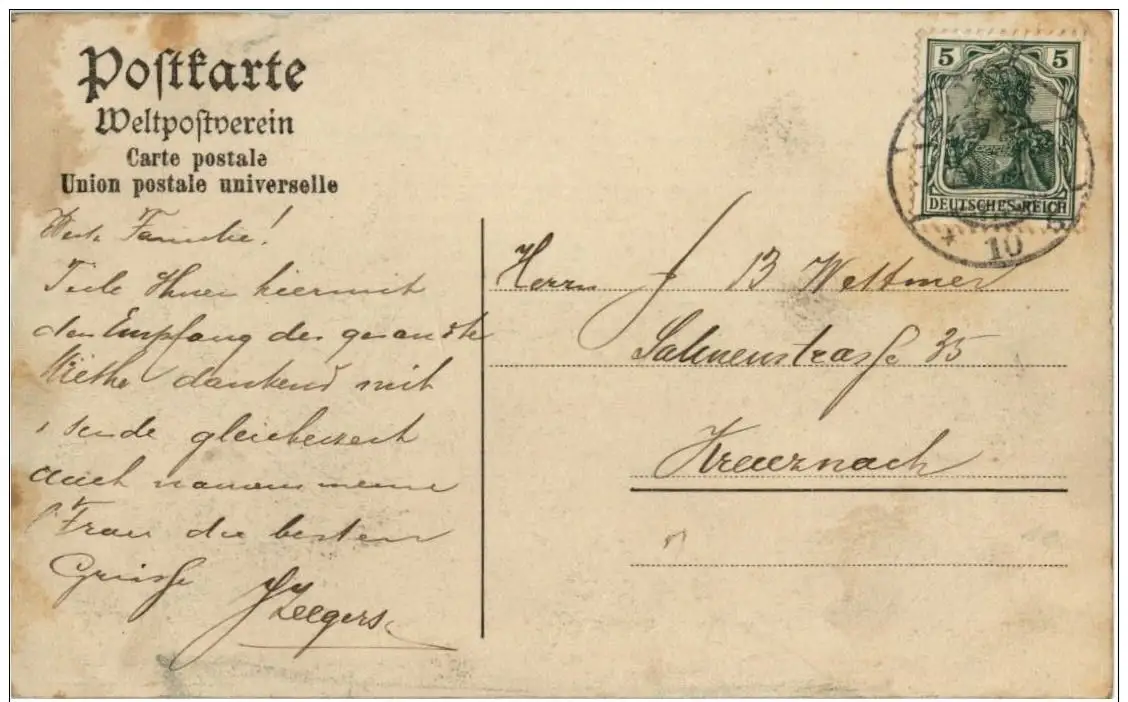 Postkarte
Weltpostverein
Carte postale
Union postale universelle
5 5
DEUTSCHES REICH
* 10
Werte Familie!
Teile Ihnen hiermit
den Empfang der gesandte
Miethe dankend mit
sende gleichzeit
auch namens meine
Frau die besten
Grüsse
Zeegers
Herrn J B Wettmer
Salinenstrasse 35
Kreuznach